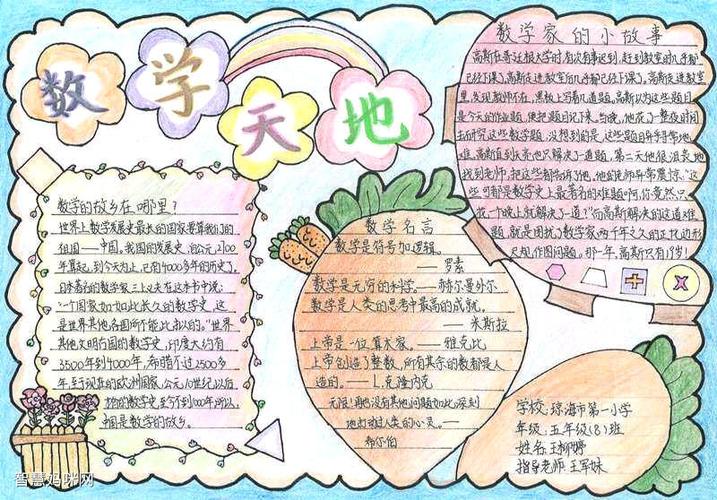 数学天地
数学家的小故事
高斯在哥廷根大学时,有次有事迟到,赶到教室时几乎都
已经下课了。高斯走进教室后几乎都已经下课了。高斯走进教室
里,发现教师不在,黑板上写着几道题。高斯以为这些题目
是今天的作业题,便把题目记下来。当晚,他花了整夜时间
去研究这些数学题,没想到的是,这些题目异乎寻常地
难。高斯直到天亮也只解决了一道题,第二天他很沮丧地
找到老师,把这些都告诉了他,他的老师非常震惊:"这
些可都是数学史上最著名的难题啊,你竟然只
花一个晚上就解决了一道?"而高斯解决的这道难
题,就是困扰了数学家两千年之久的正十七边形
尺规作图问题,那一年,高斯只有19岁!
数学的故乡在哪里?
世界上数学发展史最长的国家要算我们的
祖国——中国。我国的发展史,自公元前2700
年算起,到今天为止,已有4000多年的历史了。
日本著名的数学家三上义夫在这本书中说:
"一个国家如此长久的数学史,这
是世界其他各国所不能比拟的。"世界
其他文明古国的数学史,印度大约有
3500年到4000年,希腊不过2500多
年,至于现在的欧洲国家,公元10世纪以后
的数学史,至今不到1000年,所以
中国是数学的故乡。
数学名言
数学是符号加逻辑。
——罗素
数学是无穷的科学。——赫尔曼外尔
数学是人类的思考中最高的成就。
——米斯拉
上帝是一位算术家。——雅克比
上帝创造了整数,所有其余的数都是人
造的。——L.克隆内克
无限!再也没有其他问题如此深刻
地打动人类的心灵。——
希尔伯
学校:琼海市第一小学
年级:五年级(8)班
姓名:王柳婷
指导老师:王军妹
智慧妈咪网